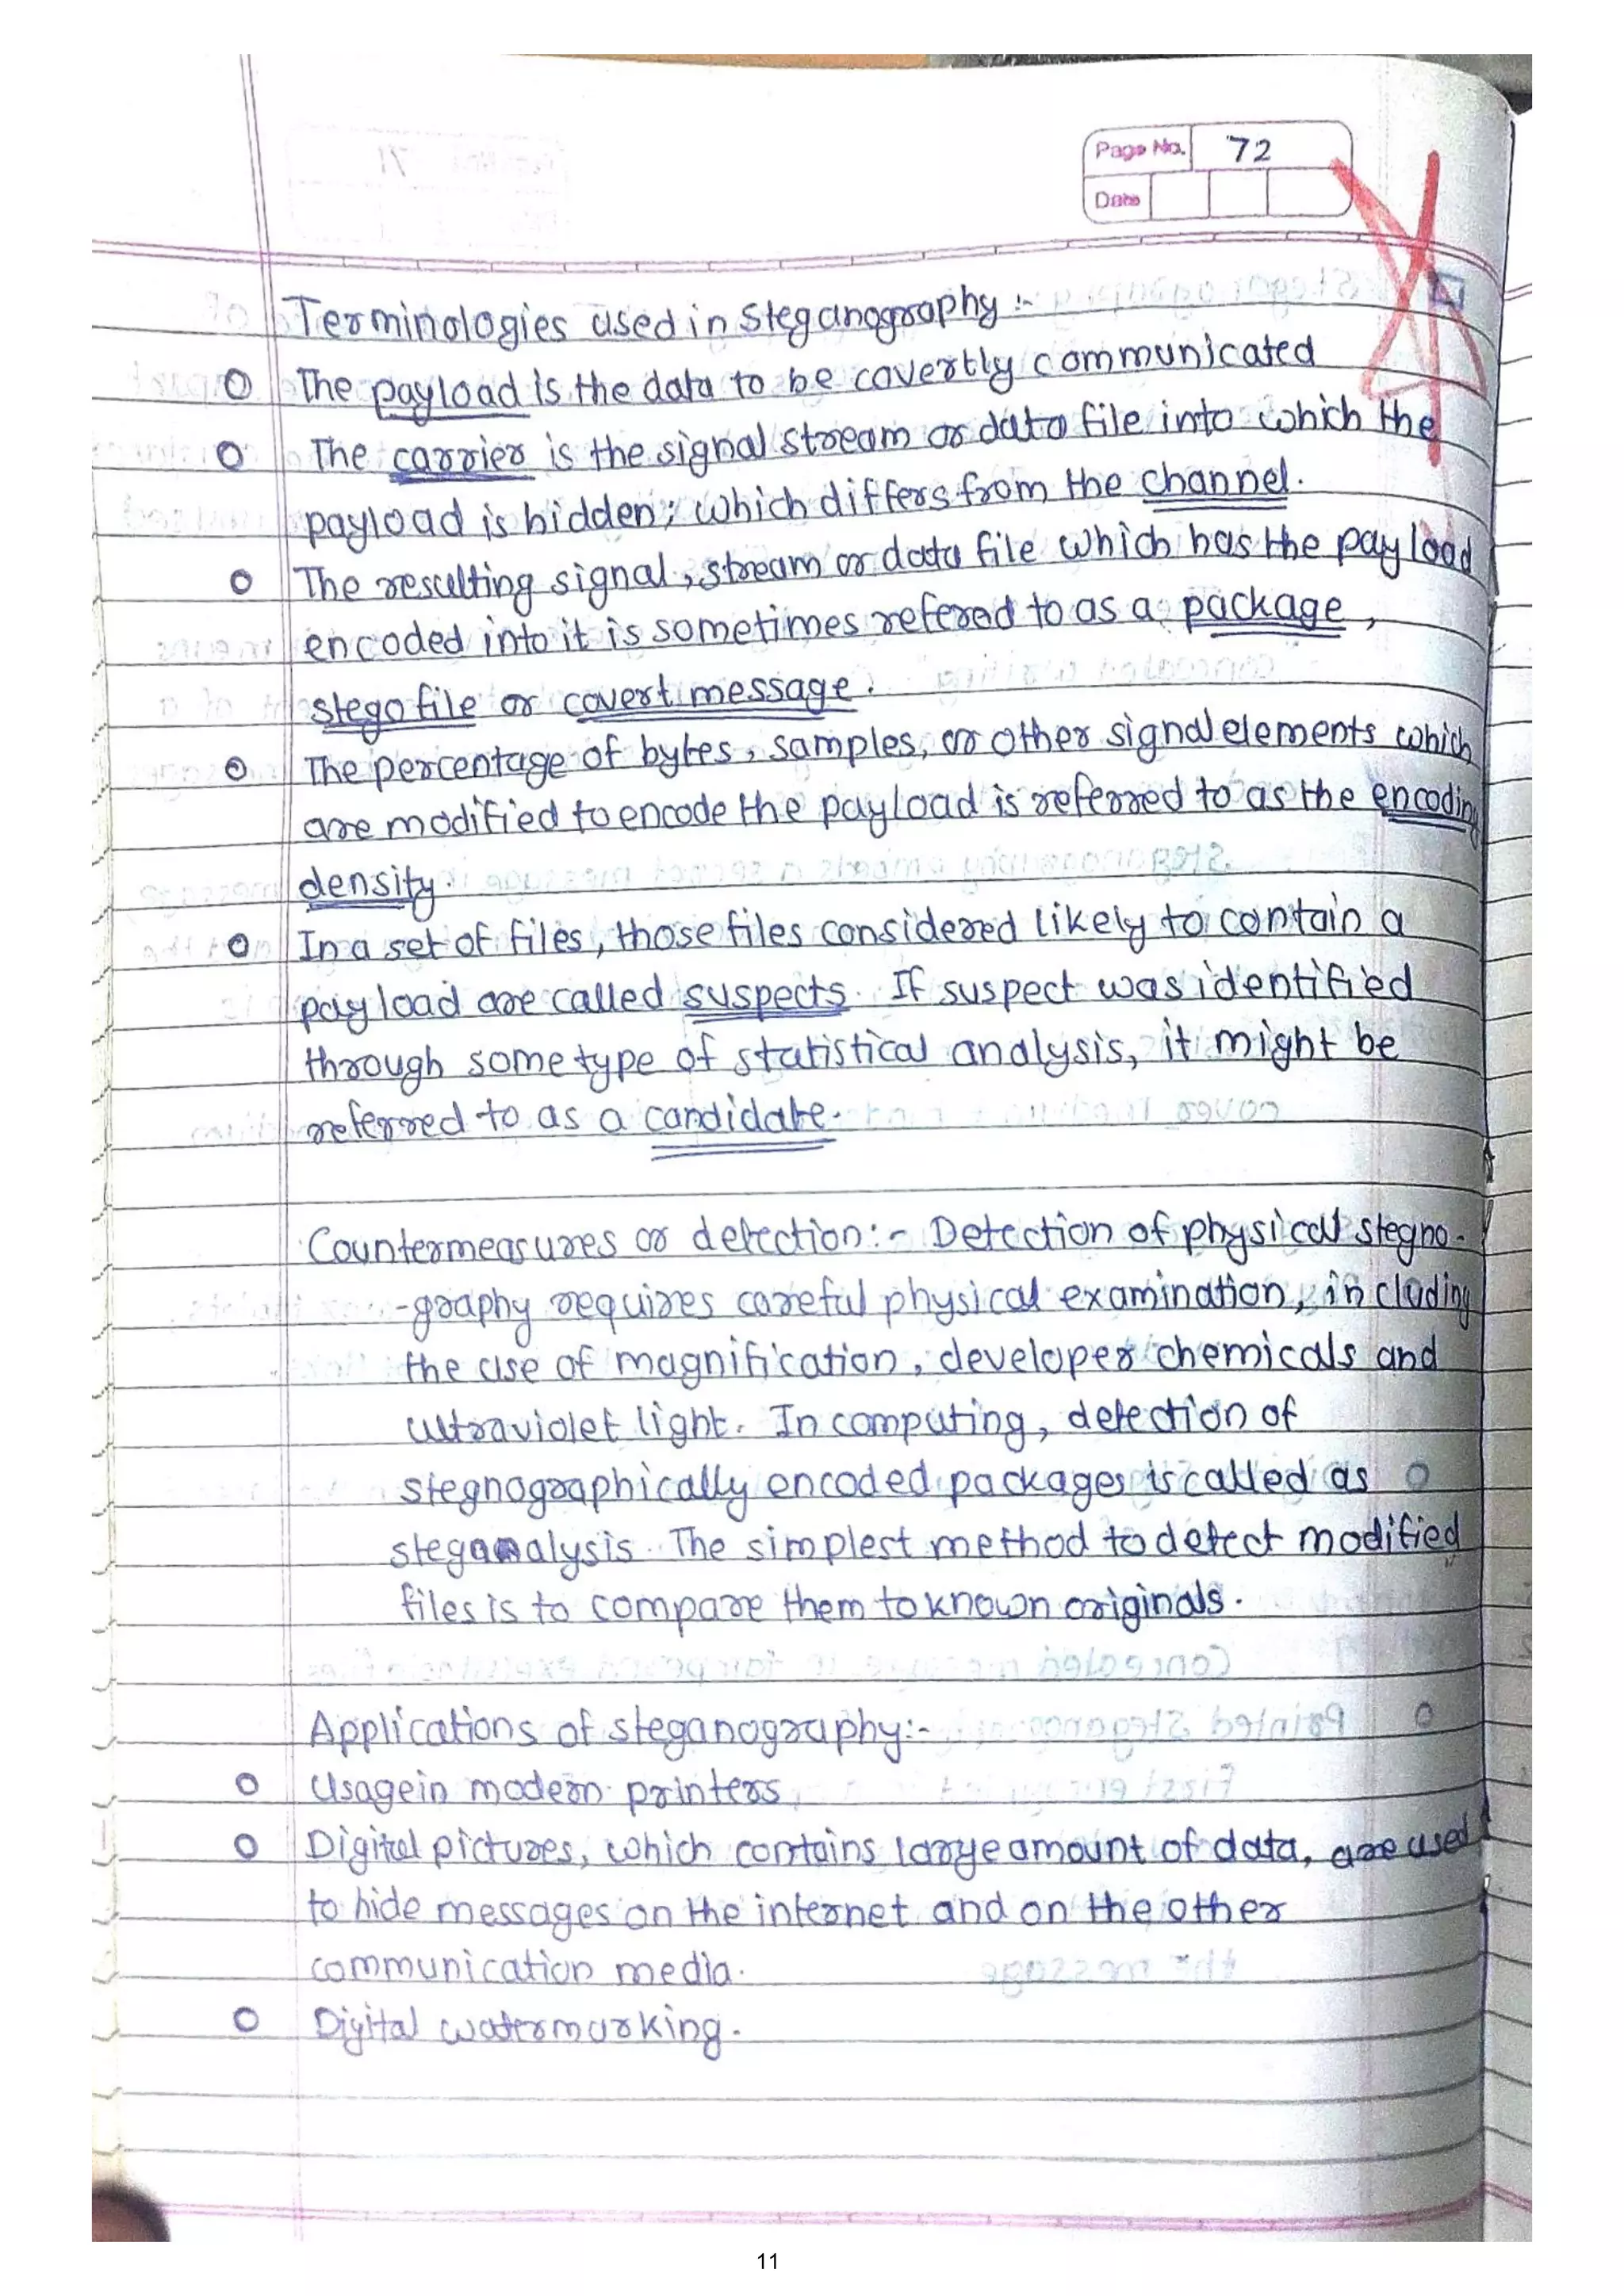 Page No. 72
Date
Terminologies used in steganography :-
o The payload is the data to be covertly communicated
o The carrier is the signal stream or data file into which the
payload is hidden; which differs from the channel.
o The resulting signal, stream or data file which has the payload
encoded into it is sometimes refered to as a package,
stego file or covert message.
o The percentage of bytes, samples, or other signal elements which
are modified to encode the payload is referred to as the encoding
density.
o In a set of files, those files considered likely to contain a
payload are called suspects. If suspect was identified
through some type of statistical analysis, it might be
referred to as a candidate.
Countermeasures or detection:- Detection of physical stegno-
-graphy requires careful physical examination, including
the use of magnification, developer chemicals and
ultraviolet light. In computing, detection of
stegnographically encoded packages is called as
steganalysis. The simplest method to detect modified
files is to compare them to known originals.
Applications of steganography:-
o Usage in modern printers
o Digital pictures, which contains large amount of data, are used
to hide messages on the internet and on the other
communication media.
o Digital watermarking.
11